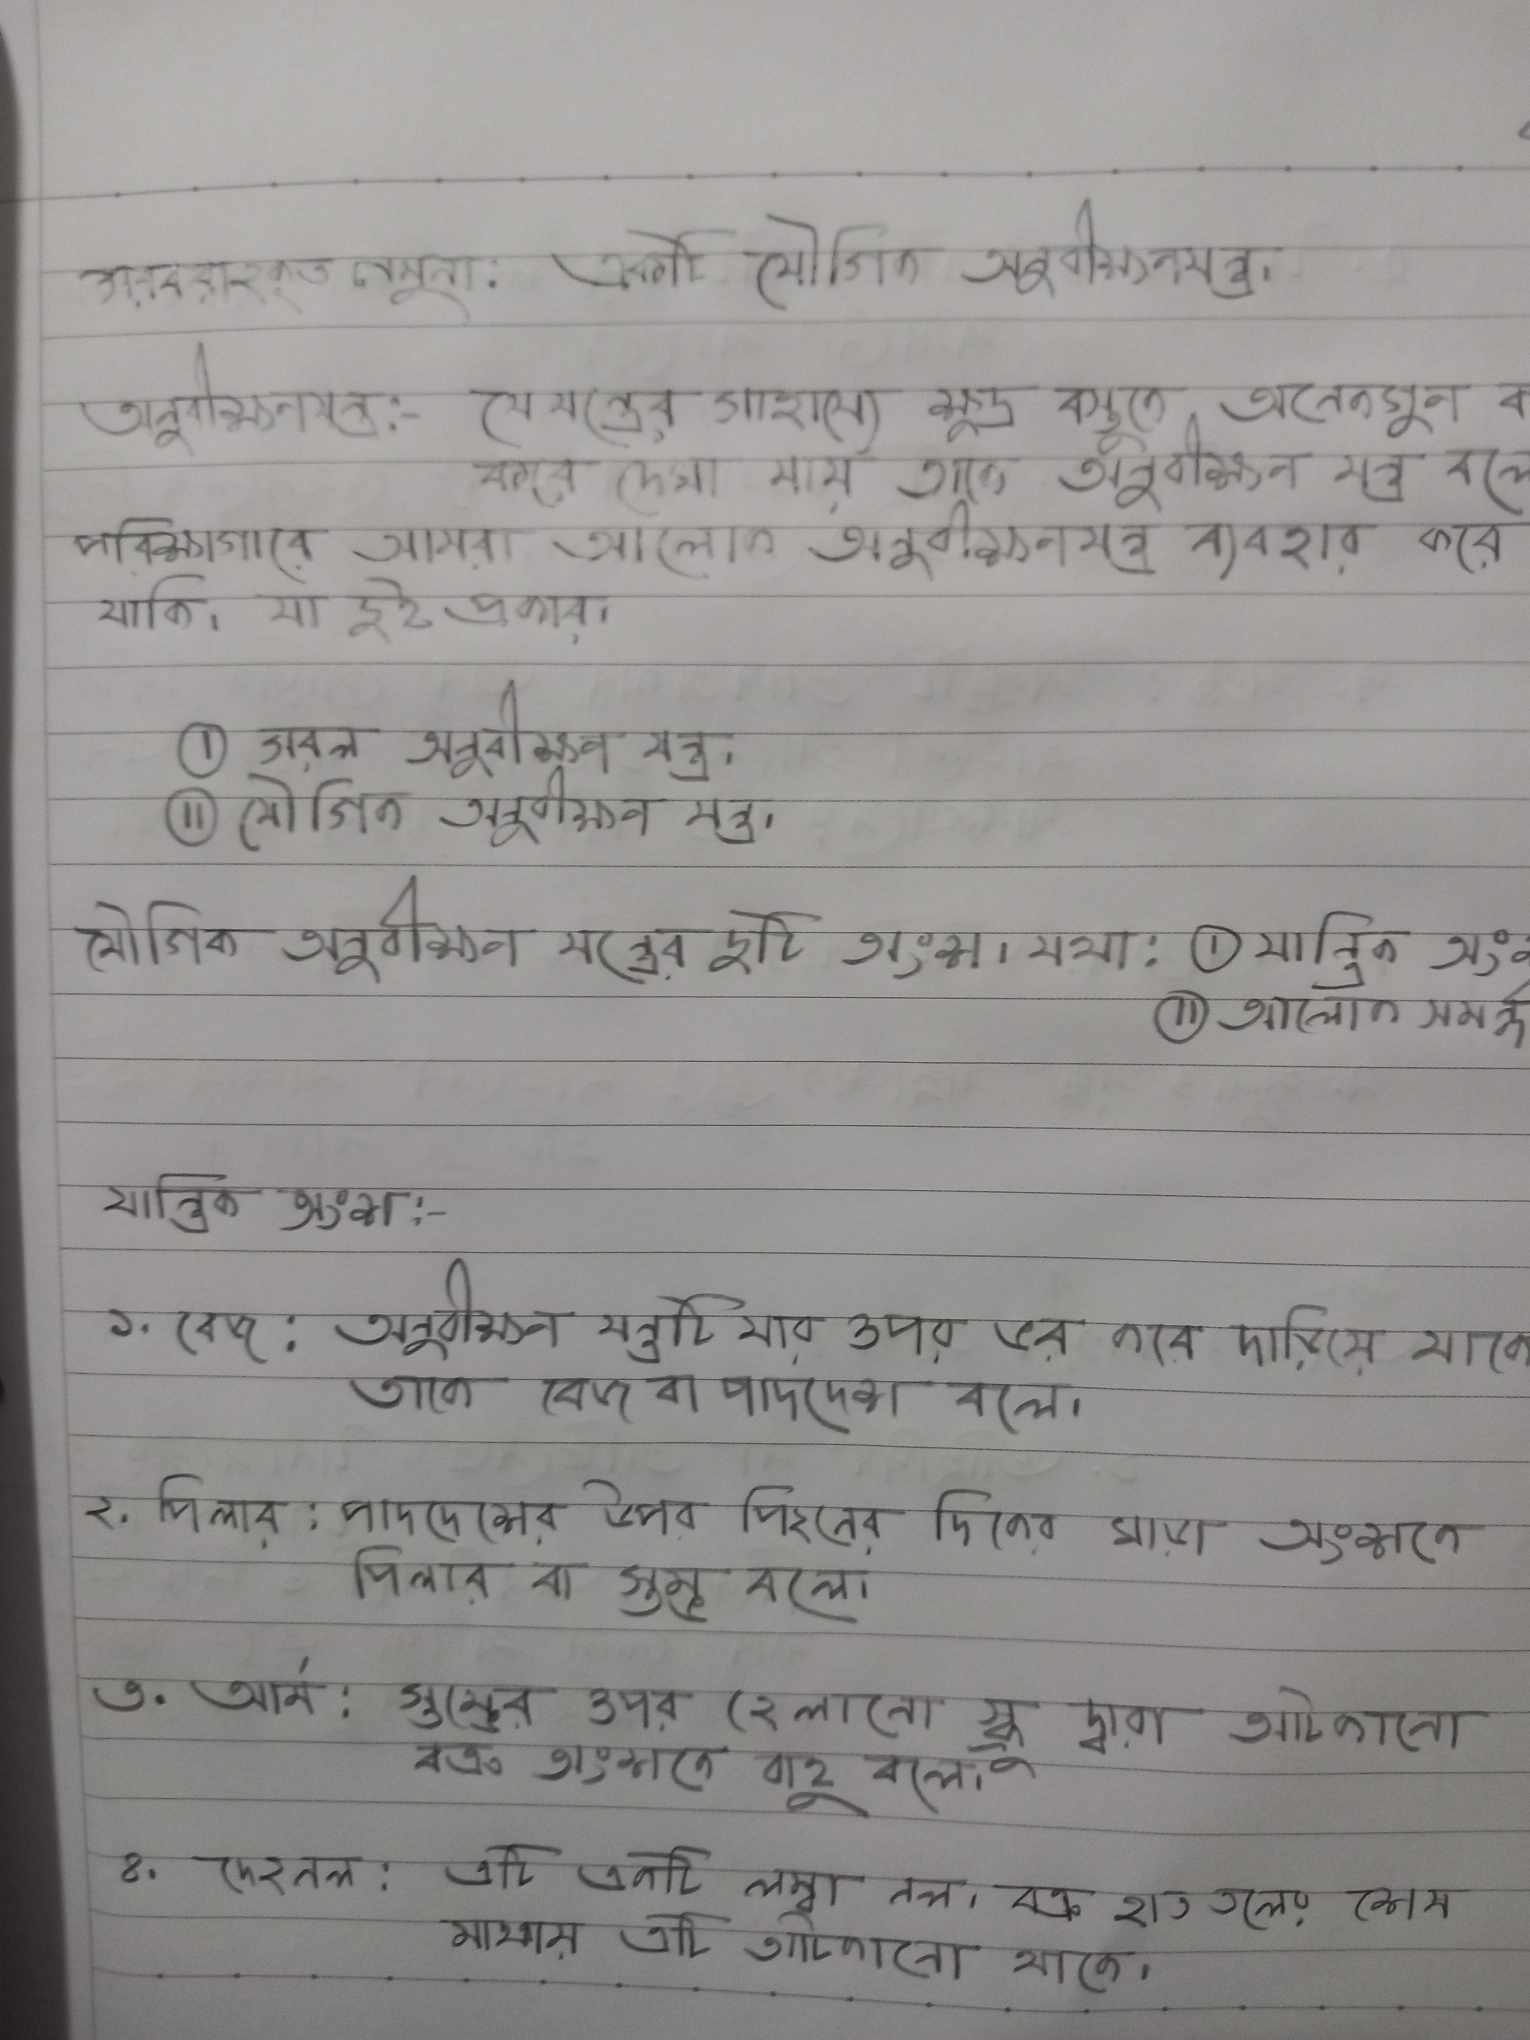 নমুনা: একটি যৌগিক অনুবীক্ষনযন্ত্র।
অনুবীক্ষনযন্ত্র:- যে যন্ত্রের সাহায্যে ক্ষুদ্র বস্তুকে অনেকগুন
করে দেখা যায় তাকে অনুবীক্ষন যন্ত্র বলে
পরিক্ষাগারে আমরা আলোক অনুবীক্ষনযন্ত্র ব্যবহার করে
থাকি। যা দুই প্রকার।
(i) সরল অনুবীক্ষন যন্ত্র।
(ii) যৌগিক অনুবীক্ষন যন্ত্র।
যৌগিক অনুবীক্ষন যন্ত্রের দুটি অংশ। যথা: (i) যান্ত্রিক অংশ
(ii) আলোক
যান্ত্রিক অংশ:-
১. বেজ: অনুবীক্ষন যন্ত্রটি যার ওপর ভর করে দাড়িয়ে থাকে
তাকে বেজ বা পাদদেশ বলে।
২. পিলার: পাদদেশের উপর পিছনের দিকের খাড়া অংশকে
পিলার বা স্তম্ভ বলে।
৩. আর্ম: স্তম্ভের ওপর হেলানো স্ক্রু দ্বারা আটকানো
বক্র অংশকে বাহু বলে।
৪. দেহনল: এটি একটি লম্বা নল। বক্র হাতলের শেষ
মাথায় এটি আটকানো থাকে।